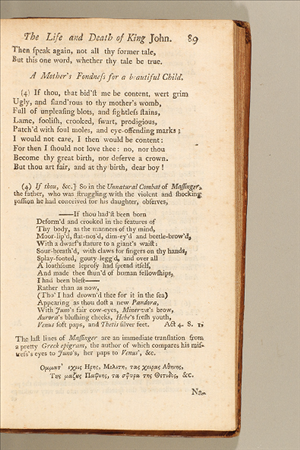 The Life and Death of King John. 89
Then ſpeak again, not all thy former tale,
But this one word, whether thy tale be true.
A Mother's Fondneſs for a beautiful Child.
(4) If thou, that bid'ſt me be content, wert grim
Ugly, and ſland'rous to thy mother's womb,
Full of unpleaſing blots, and ſightleſs ſtains,
Lame, fooliſh, crooked, ſwart, prodigious,
Patch'd with foul moles, and eye-offending marks;
I would not care, I then would be content:
For then I ſhould not love thee: no, nor thou
Become thy great birth, nor deſerve a crown.
But thou art fair, and at thy birth, dear boy!
(4) If thou, &c.] So in the Unnatural Combat of Maſſinger,
the father, who was ſtruggling with the violent and ſhocking
paſſion he had conceived for his daughter, obſerves,
——If thou had'ſt been born
Deform'd and crooked in the features of
Thy body, as the manners of thy mind,
Moor-lip'd, flat-nos'd, dim-ey'd and beetle-brow'd,
With a dwarf's ſtature to a giant's waiſt:
Sour-breath'd, with claws for fingers on thy hands,
Splay-footed, gouty-legg'd, and over all
A loathſome leproſy had ſpread itſelf,
And made thee ſhun'd of human fellowſhips,
I had been bleſt——
Rather than as now,
(Tho' I had drown'd thee for it in the ſea)
Appearing as thou doſt a new Pandora,
With Juno's fair cow-eyes, Minerva's brow,
Aurora's bluſhing cheeks, Hebe's freſh youth,
Venus ſoft paps, and Thetis ſilver feet. Act 4. S. 1.
The laſt lines of Maſſinger are an immediate tranſlation from
a pretty Greek epigram, the author of which compares his miſ-
treſs's eyes to Juno's, her paps to Venus', &c.
Ομματ' εχεις Ηρης, Μελιτη, τας χειρας Αθηνης,
Τους μαζους Παφιης, τα σφυρα της Θετιδος, &c.